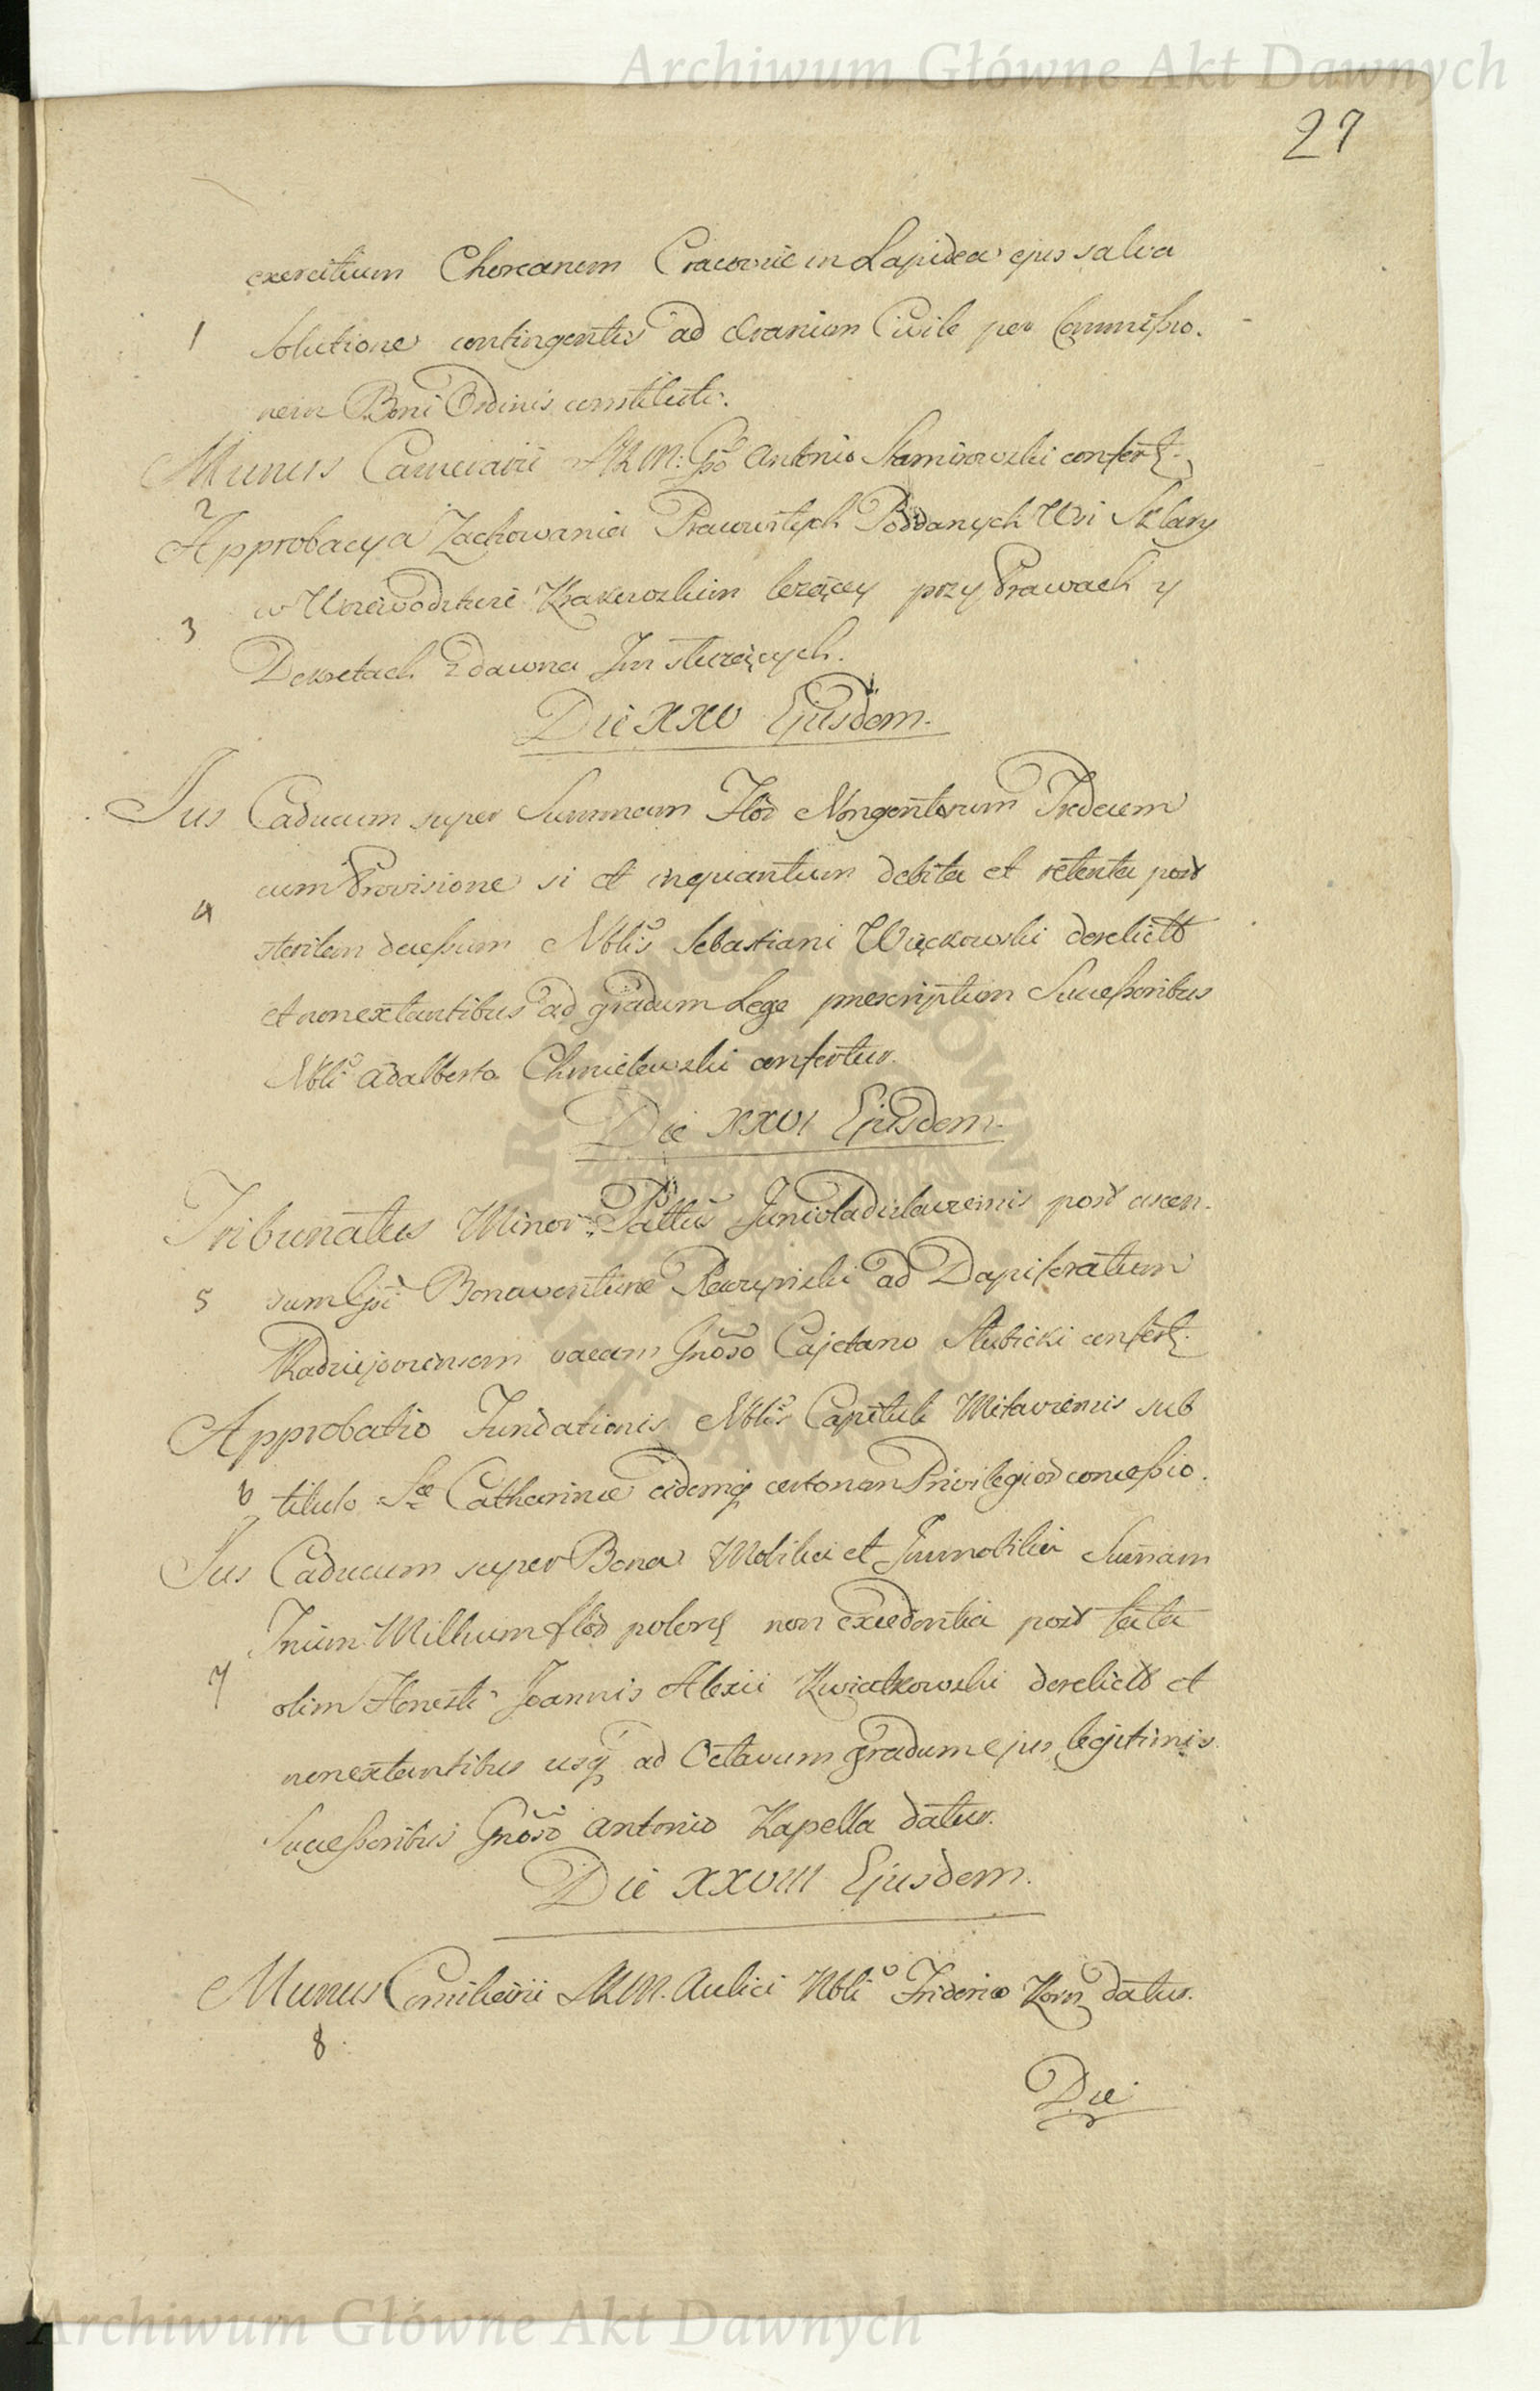 Archiwum Główne Akt Dawnych
27
exercitium Chorearum Cracoviæ in Lapidea ejus salva
1 Solutione contingentis ad Ærarium Civile per Commißio-
nem Boni Ordinis constituti.
Munus Camerarii SRM: Gso Antonio Skarmirowski confert.
2
Approbacya Zachowania Pracowitych Poddanych Wsi Sklary
w Woiewodztwie Krakowskim leżącey przy Prawach y
3
Dekretach zdawna Im służących.
Die XXV Ejusdem.
Jus Caducum super Summam Flor Nongentorum Tredecim
cum Provisione si et inquantum debita et retenta post
4
sterilem deceßum Nblis Sebastiani Więckowski derelict
et non extantibus ad gradum Lege præscriptum Succeßoribus
Nbli Adalberto Chmielewski confertur.
Die XXVI Ejusdem.
Tribunatus Minor: Pallus Junivladislaviensis post ascen-
5 sum Gsi Bonaventuræ ad Dapiferatum
Radziejoviensem vacans Gnoso Cajetano Słubicki confert.
Approbatio Fundationis Nblis Capituli Mitaviensis sub
6 titulo Sæ Catharinæ eidemq certorum Privilegior conceßio.
Jus Caducum super Bona Mobilia et Immobilia Summam
Trium Millium flor polon non excedentia post fata
7 olim Honesti Joannis Alexii Kwiatkowski derelict et
non extantibus usq ad Octavum gradum ejus legitimis
Succeßoribus Gnoso Antonio Kapella datur.
Die XXVIII Ejusdem.
Munus Consiliarii SRM. Aulici Nbli Friderico Korn datur.
8
Die
Archiwum Główne Akt Dawnych